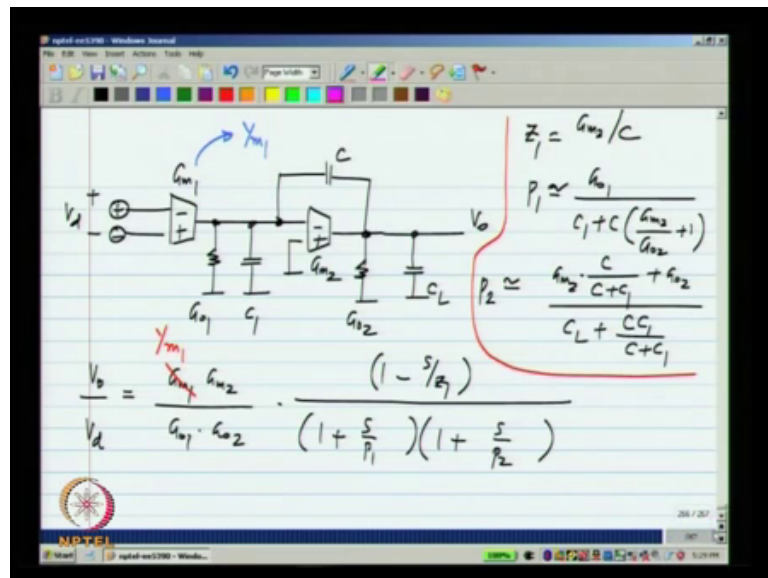 nptel-ee5390 - Windows Journal
File Edit View Insert Actions Tools Help
Page Width
B I
Y_m1
G_m1
C
V_d + −
+
−
− +
− +
G_m2
V_o
G_o1
C_1
G_o2
C_L
z_1 = G_m2 / C
p_1 ≃ G_o1 / (C_1 + C (G_m2/G_o2 + 1))
p_2 ≃ (G_m2 · C/(C + C_1) + G_o2) / (C_L + CC_1/(C + C_1))
Y_m1
V_o/V_d = (G_m1 G_m2)/(G_o1 · G_o2) · (1 − s/z_1) / ((1 + s/p_1)(1 + s/p_2))
NPTEL
266 / 267
Start
nptel-ee5390 - Windo...
100%
5:29 PM